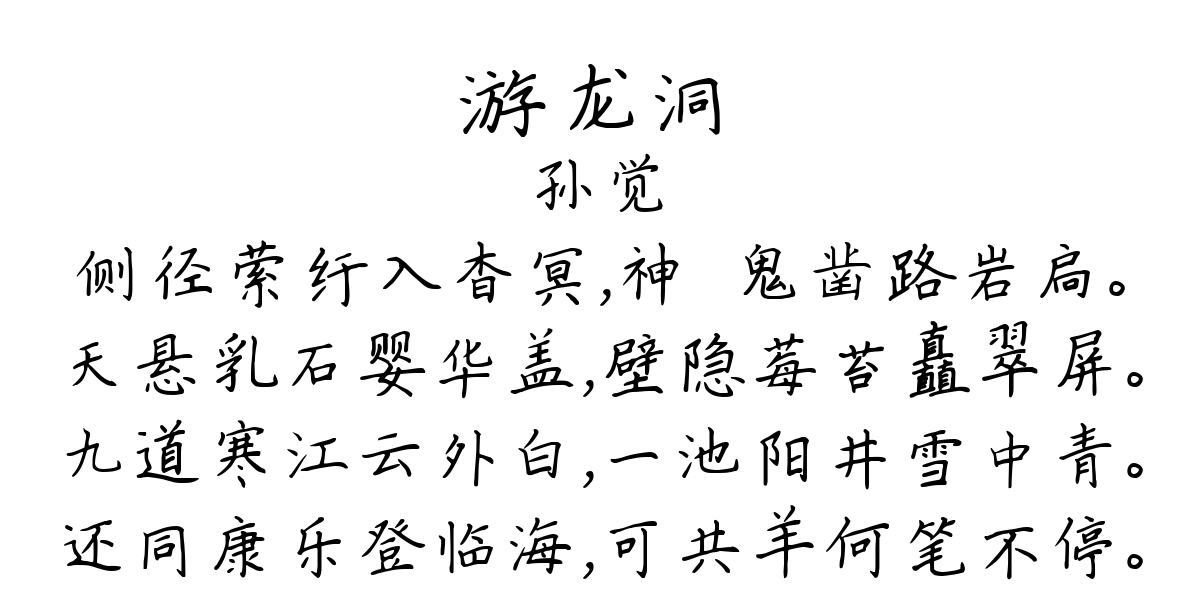 游龙洞
孙觉
侧径萦纡入杳冥,神 鬼凿路岩扃。
天悬乳石婴华盖,壁隐莓苔矗翠屏。
九道寒江云外白,一池阳井雪中青。
还同康乐登临海,可共羊何笔不停。